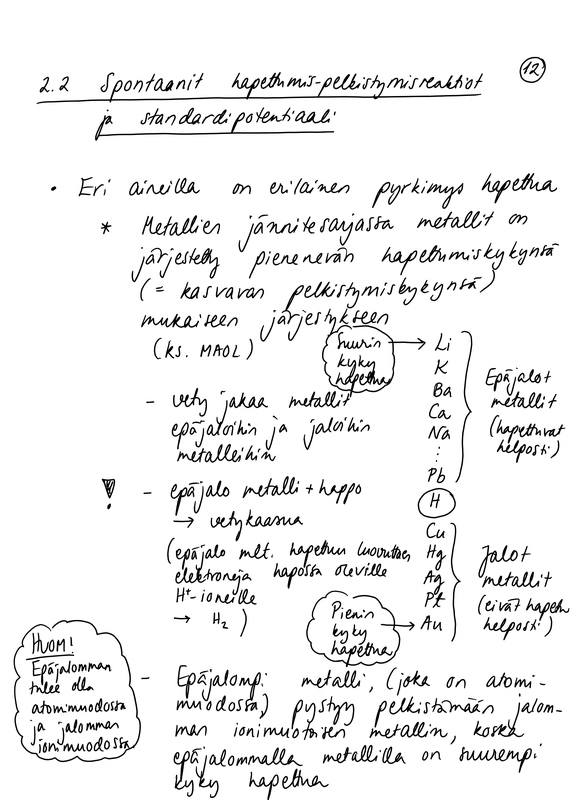 12
2.2 Spontaanit hapettumis-pelkistymisreaktiot
ja standardipotentiaali
• Eri aineilla on erilainen pyrkimys hapettua
* Metallien jännitesarjassa metallit on
järjestetty pienenevän hapettumiskykynsä
(= kasvavan pelkistymiskykynsä)
mukaiseen järjestykseen
(ks. MAOL)
Suurin
kyky
hapettua
→ Li
K
Ba
Ca
Na
⋮
Pb
H
Cu
Hg
Ag
Pt
→ Au
Epäjalot
metallit
(hapettuvat
helposti)
Jalot
metallit
(eivät hapetu
helposti)
Pienin
kyky
hapettua
- vety jakaa metallit
epäjaloihin ja jaloihin
metalleihin
! - epäjalo metalli + happo
→ vetykaasua
(epäjalo mlt. hapettuu luovuttaen
elektroneja hapossa oleville
H⁺-ioneille
→ H₂ )
HUOM!
Epäjalomman
tulee olla
atomimuodossa
ja jalomman
ionimuodossa
- Epäjalompi metalli, (joka on atomi-
muodossa) pystyy pelkistämään jalom-
man ionimuotoisen metallin, koska
epäjalommalla metallilla on suurempi
kyky hapettua